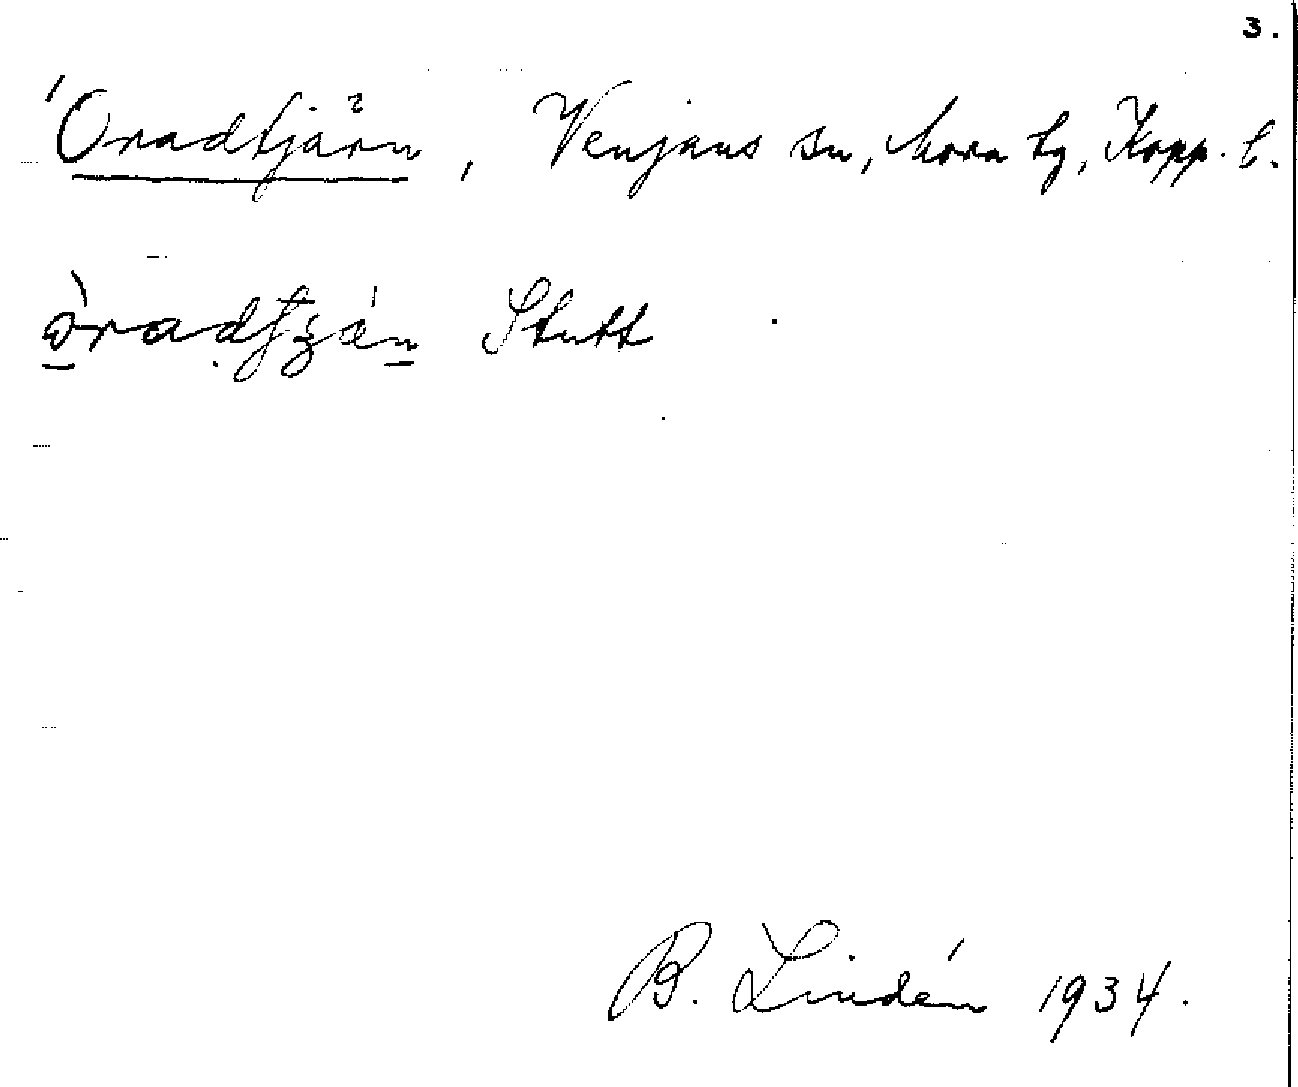 3.
'Oradtjärn, Venjans sn, Mora tg, Kopp. l.
Stutt
B. Lindén 1934.